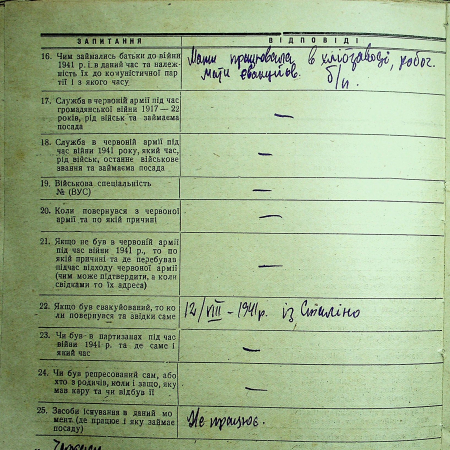 ЗАПИТАННЯ ВІДПОВІДІ
16. Чим займались батьки до війни
1941 р. і в даний час та належ-
ність їх до комуністичної пар-
тії і з якого часу
Мати працювала в хлібзаводі, робоч.
мати евакуйов. б/п.
17. Служба в червоній армії під час
громадянської війни 1917 — 22
років, рід військ та займаєма
посада
—
18. Служба в червоній армії під
час війни 1941 року, який час,
рід військ, останнє військове
звання та займаєма посада
—
19. Військова спеціальність
№ (ВУС)
—
20. Коли повернувся з червоної
армії та по якій причині
—
21. Якщо не був в червоній армії
під час війни 1941 р., то по
якій причині та де перебував
підчас відходу червоної армії
(чим може підтвердити, а коли
свідками то їх адреса)
—
22. Якщо був евакуйований, то ко
ли повернувся та звідки саме
12/VIII – 1941 р. із Сталіно
23. Чи був в партизанах під час
війни 1941 р. та де саме і
який час
—
24. Чи був репресований сам, або
хто з родичів, коли і защо, яку
мав кару та чи відбув її
—
25. Засоби існування в даний мо
мент (де працює і яку займає
посаду)
Не працює.